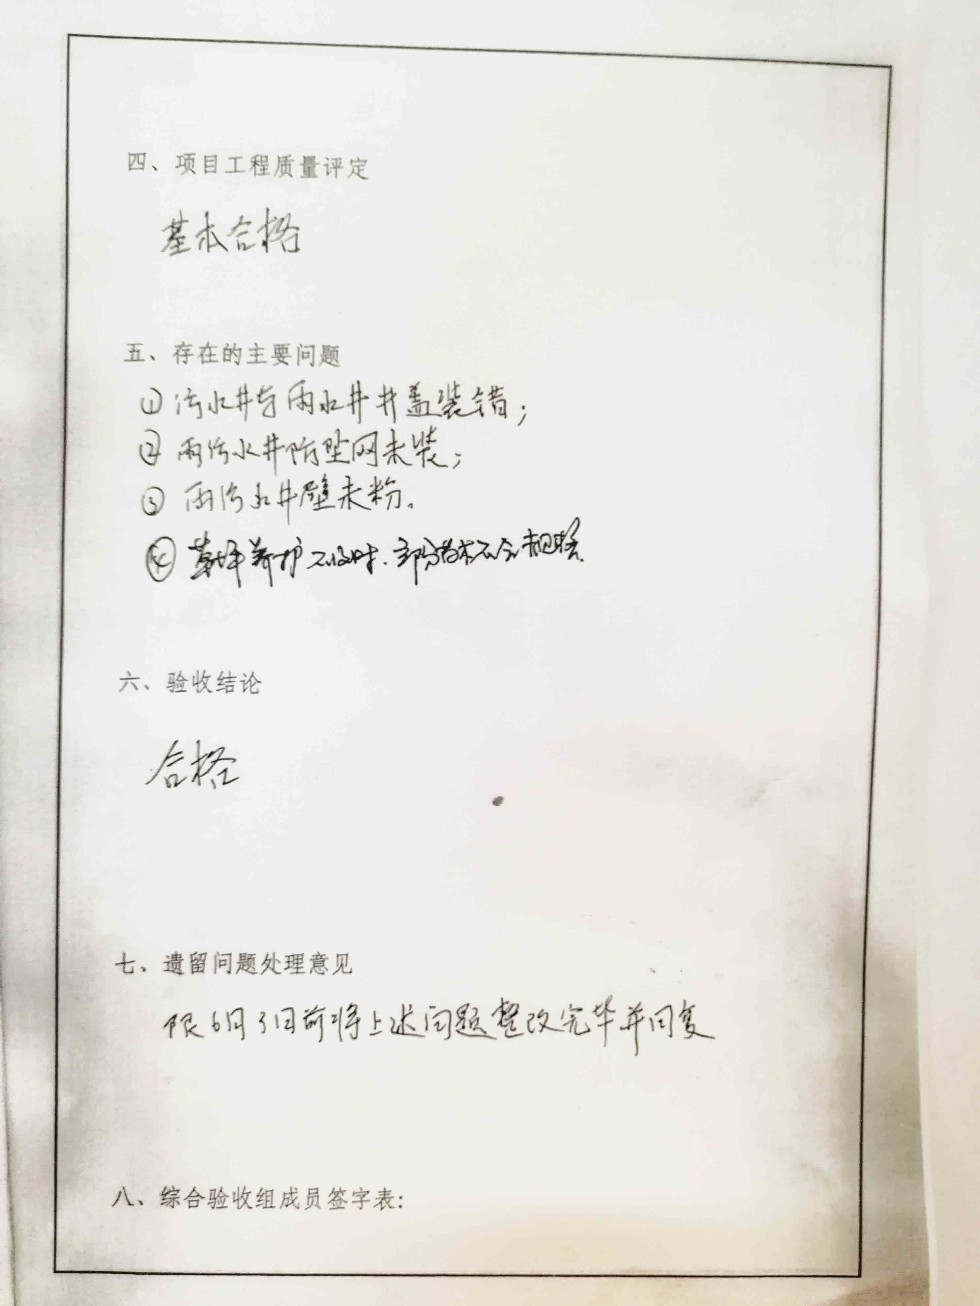 四、项目工程质量评定
基本合格
五、存在的主要问题
①污水井与雨水井井盖装错；
②雨污水井防坠网未装；
③雨污水井壁未粉。
④草坪养护不及时、部分苗木不合规格.
六、验收结论
合格
七、遗留问题处理意见
限6月3日前将上述问题整改完毕并回复
八、综合验收组成员签字表: